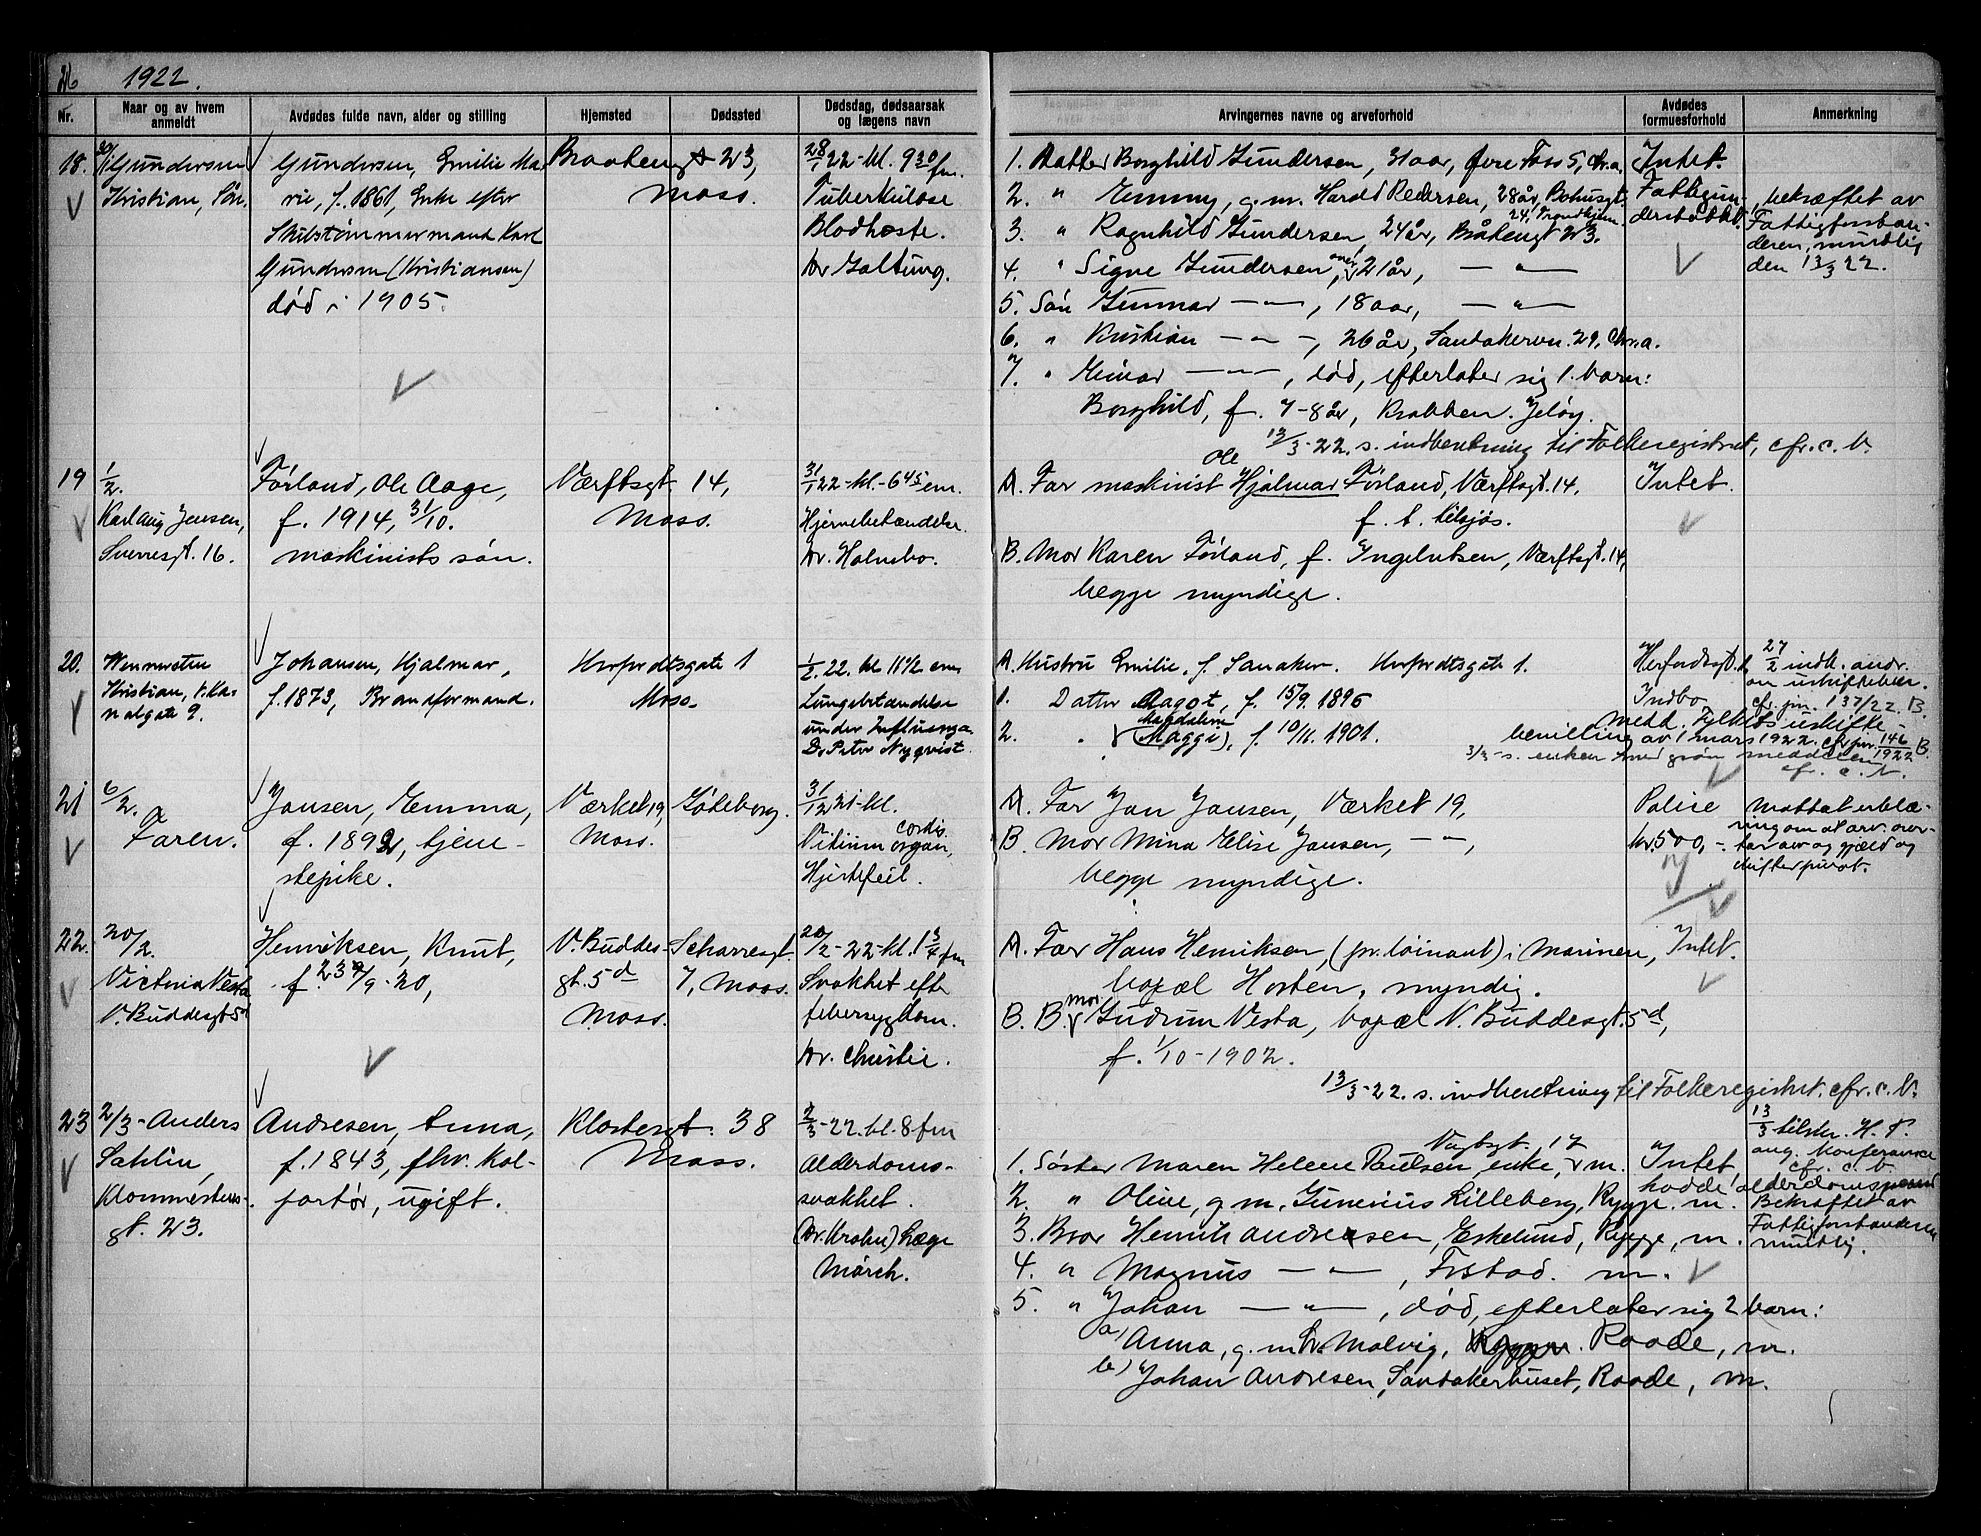 26 1922.
Nr.
Naar og av hvem
anmeldt
Avdødes fulde navn, alder og stilling
Hjemsted
Dødssted
Dødsdag, dødsaarsak
og lægens navn
Arvingernes navne og arveforhold
Avdødes
formuesforhold
Anmerkning
18.
30/1 Gundersen
Kristian, Sön.
Gundersen, Emilie Ma-
rie, f. 1861, Enke efter
Skibstømmermand Karl
Gundersen (Kristiansen)
død i 1905.
Braatengt 23,
Moss.
28/1 22 - kl. 9 30 fm.
Tuberkulose
Blodhoste.
Dr Galtung.
1. Datter Borghild Gundersen, 31 aar, Øvre Foss 5, Chr.a.
2. " Emmy, g.m. Harald Pedersen, 28 år, Bohusgt.
24, Trondhjem
3. " Ragnhild Gundersen, 24 år, Bråtengt 23.
4. " Signe Gundersen, over 21 år, — " —
5. Sön Gunnar — " —, 18 aar, — " —
6. " Kristian — " —, 26 år, Sandakervn. 29, Chr.a.
7. " Einar — " —, død, efterlater sig 1. barn:
Borghild, f. 7-8 år, Krabben. Jeløy.
13/3-22. s. indberetning til Folkeregistret, cfr. c. b.
Intet.
Fattigun-
derstøttet.
bekræftet av
Fattigforstan-
deren, mundtlig
den 13/3 22.
19
1/2.
Karl Aug Jensen,
Sverresgt. 16.
Förland, Ole Aage,
f. 1914, 31/10.
maskinists søn.
Værftsgt 14,
Moss.
31/1 22 - kl. 6 45 em.
Hjernebetændelse.
Dr. Holmsbo.
Ole
A. Far maskinist Hjalmar Förland, Værftsgt. 14,
f. t. tilsjøs.
B. Mor Karen Förland, f. Ingelutsen, Værftsgt. 14,
begge myndige.
Intet.
20.
Wennersten
Kristian, v. Ka-
nalgate 9.
Johansen, Hjalmar,
f. 1873, Brandformand.
Herfordtsgate 1
Moss.
1/2. 22. kl 11 1/2 em
Lungebetændelse
under Influenza.
Dr Peter Nyqvist.
A. Hustru Emilie, f. Sanaker. Herfordtsgate 1.
1. Datter Dagot, f. 15/9. 1896
Magdalene
2. " (Maggi), f. 10/11. 1901.
Herfordsgt. 1,
Indbo
27/2 indk. andr.
om uskiftebev.
cfr. jnr. 137/22. B.
medd. Fylkets uskifte
bevilling av 1 mars 1922. cfr jnr. 146/1922 B
3/3 - s. enken med grøn meddelelse
cfr. c. b.
21
6/2.
Faren.
Jansen, Emma,
f. 1892, tjene-
stepike.
Værket 19,
Moss.
Göteborg.
31/12 21 - kl.
cordis.
Vitium organ,
Hjertefeil.
A. Far Jan Jansen, Værket 19,
B. Mor Mina Elise Jansen, — " —,
begge myndige.
Police
kr. 500,-.
Mottat erklæ-
ring om at arv. over-
tar arv og gjæld og
skifter privat.
22.
20/2.
Victoria Vesta
V. Buddesgt 5d
Henriksen, Knut,
f. 23/9-20,
V. Buddes-
gt. 5d
Moss.
Scharresgt.
7, Moss.
20/2-22-kl. 1 3/4 fm
Svakhet efter
febersygdom.
Dr. Christie.
A. Far Hans Henriksen, (pr. löinant) i Marinen,
bopæl Horten, myndig.
mor
B. B. Gudrun Vesta, bopæl V. Buddesgt. 5d,
f. 1/10-1902.
13/3-22. s. indberetning til Folkeregistret. cfr. c. b.
Intet.
23
2/3- Anders
Sahlin,
Klommestens-
gt. 23.
Andresen, Anna,
f. 1843, fhv. kol-
portør, ugift.
Klostergt. 38
Moss.
2/3-22. kl. 8 fm
Alderdoms-
svakhet.
(Dr. Krohn) Læge
Mörch.
Vogtsgt. 17
1. Søster Maren Helene Paulsen, enke, m.
2. " Oline, g m. Gunerius Lilleberg, Rygge. m.
3. Bror Henrik Andresen, Eskelund, Rygge, m.
4. " Magnus — " —, Fr.stad. m.
5. " Johan — " —, død, efterlater sig 2 barn:
a) Anna, g. m. Malvig, Raade, m.
b) Johan Andresen, Sandakerhuset, Raade, m.
Intet,
hadde alderdoms
13/3 tilskr. H. P.
ang. Konferance
cfr. c. b
Bekræftet av
Fattigforstanderen
mundtlig.